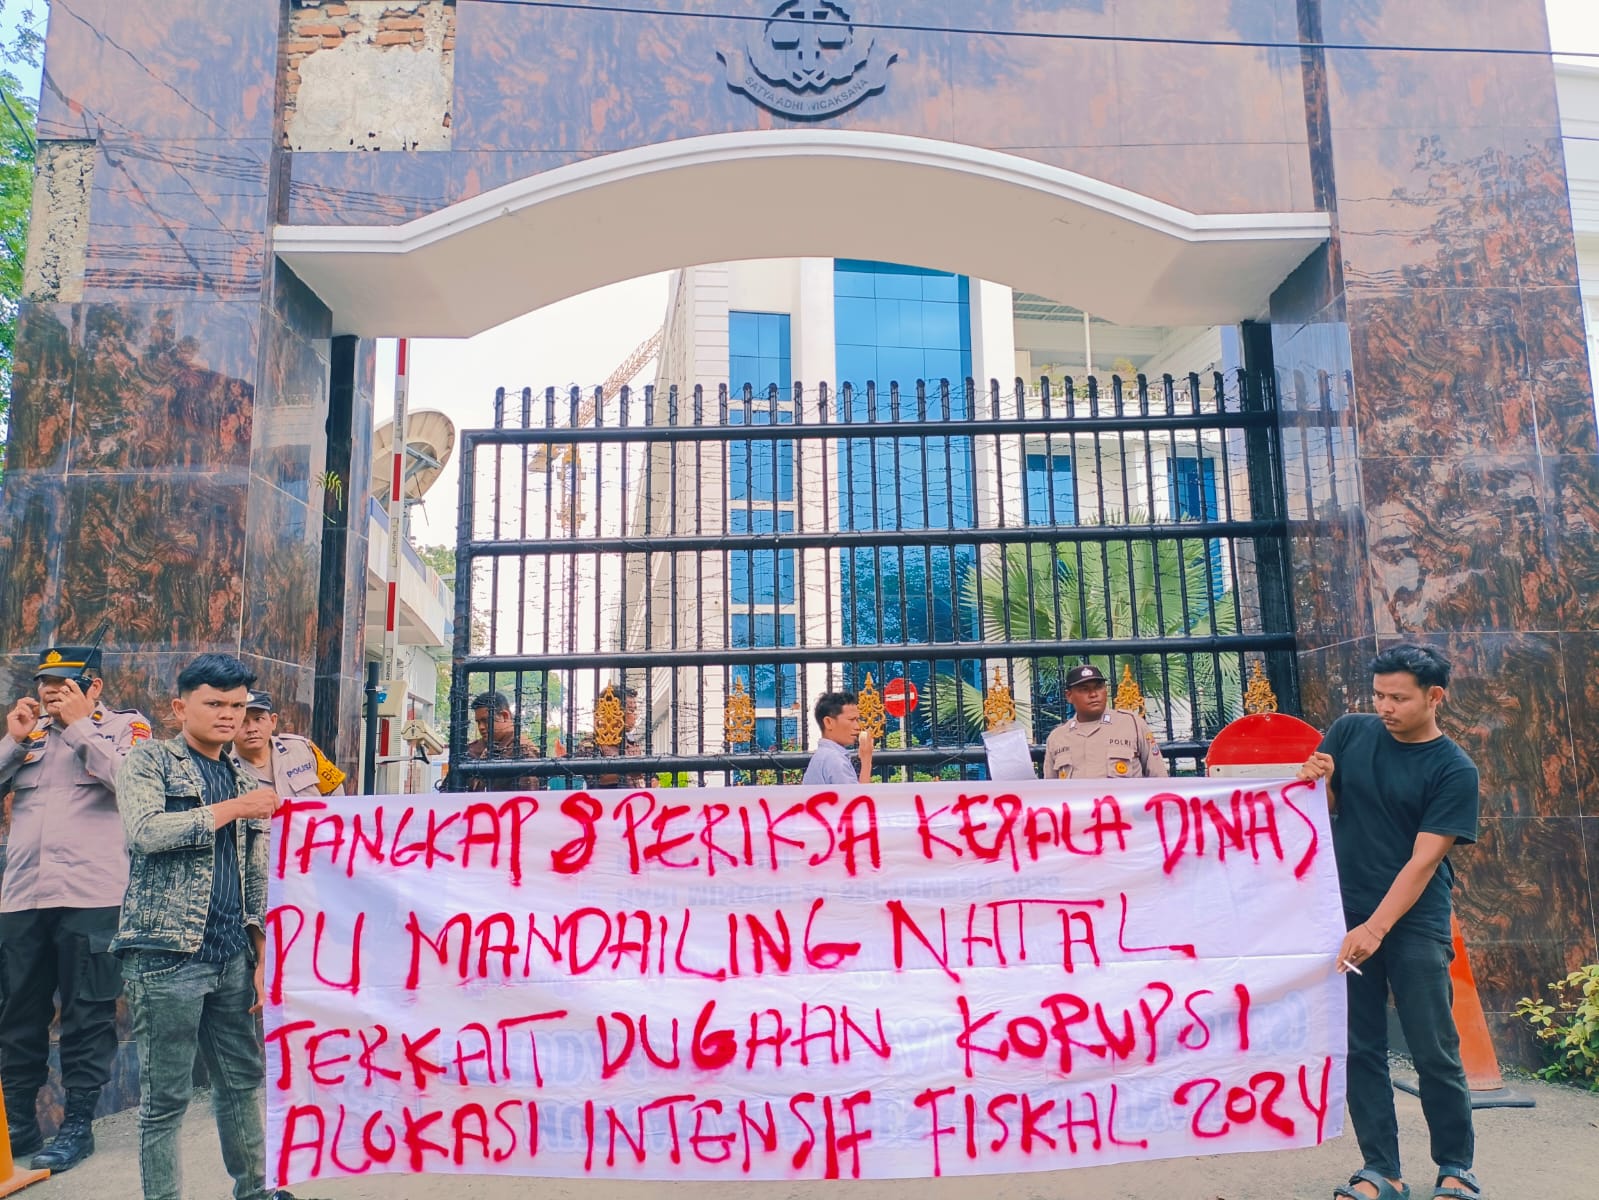 SATYA ADHI WICAKSANA
POLISI
POLRI
TANGKAP & PERIKSA KEPALA DINAS
PU MANDAILING NATAL
TERKAIT DUGAAN KORUPSI
ALOKASI INTENSIF FISKAL 2024